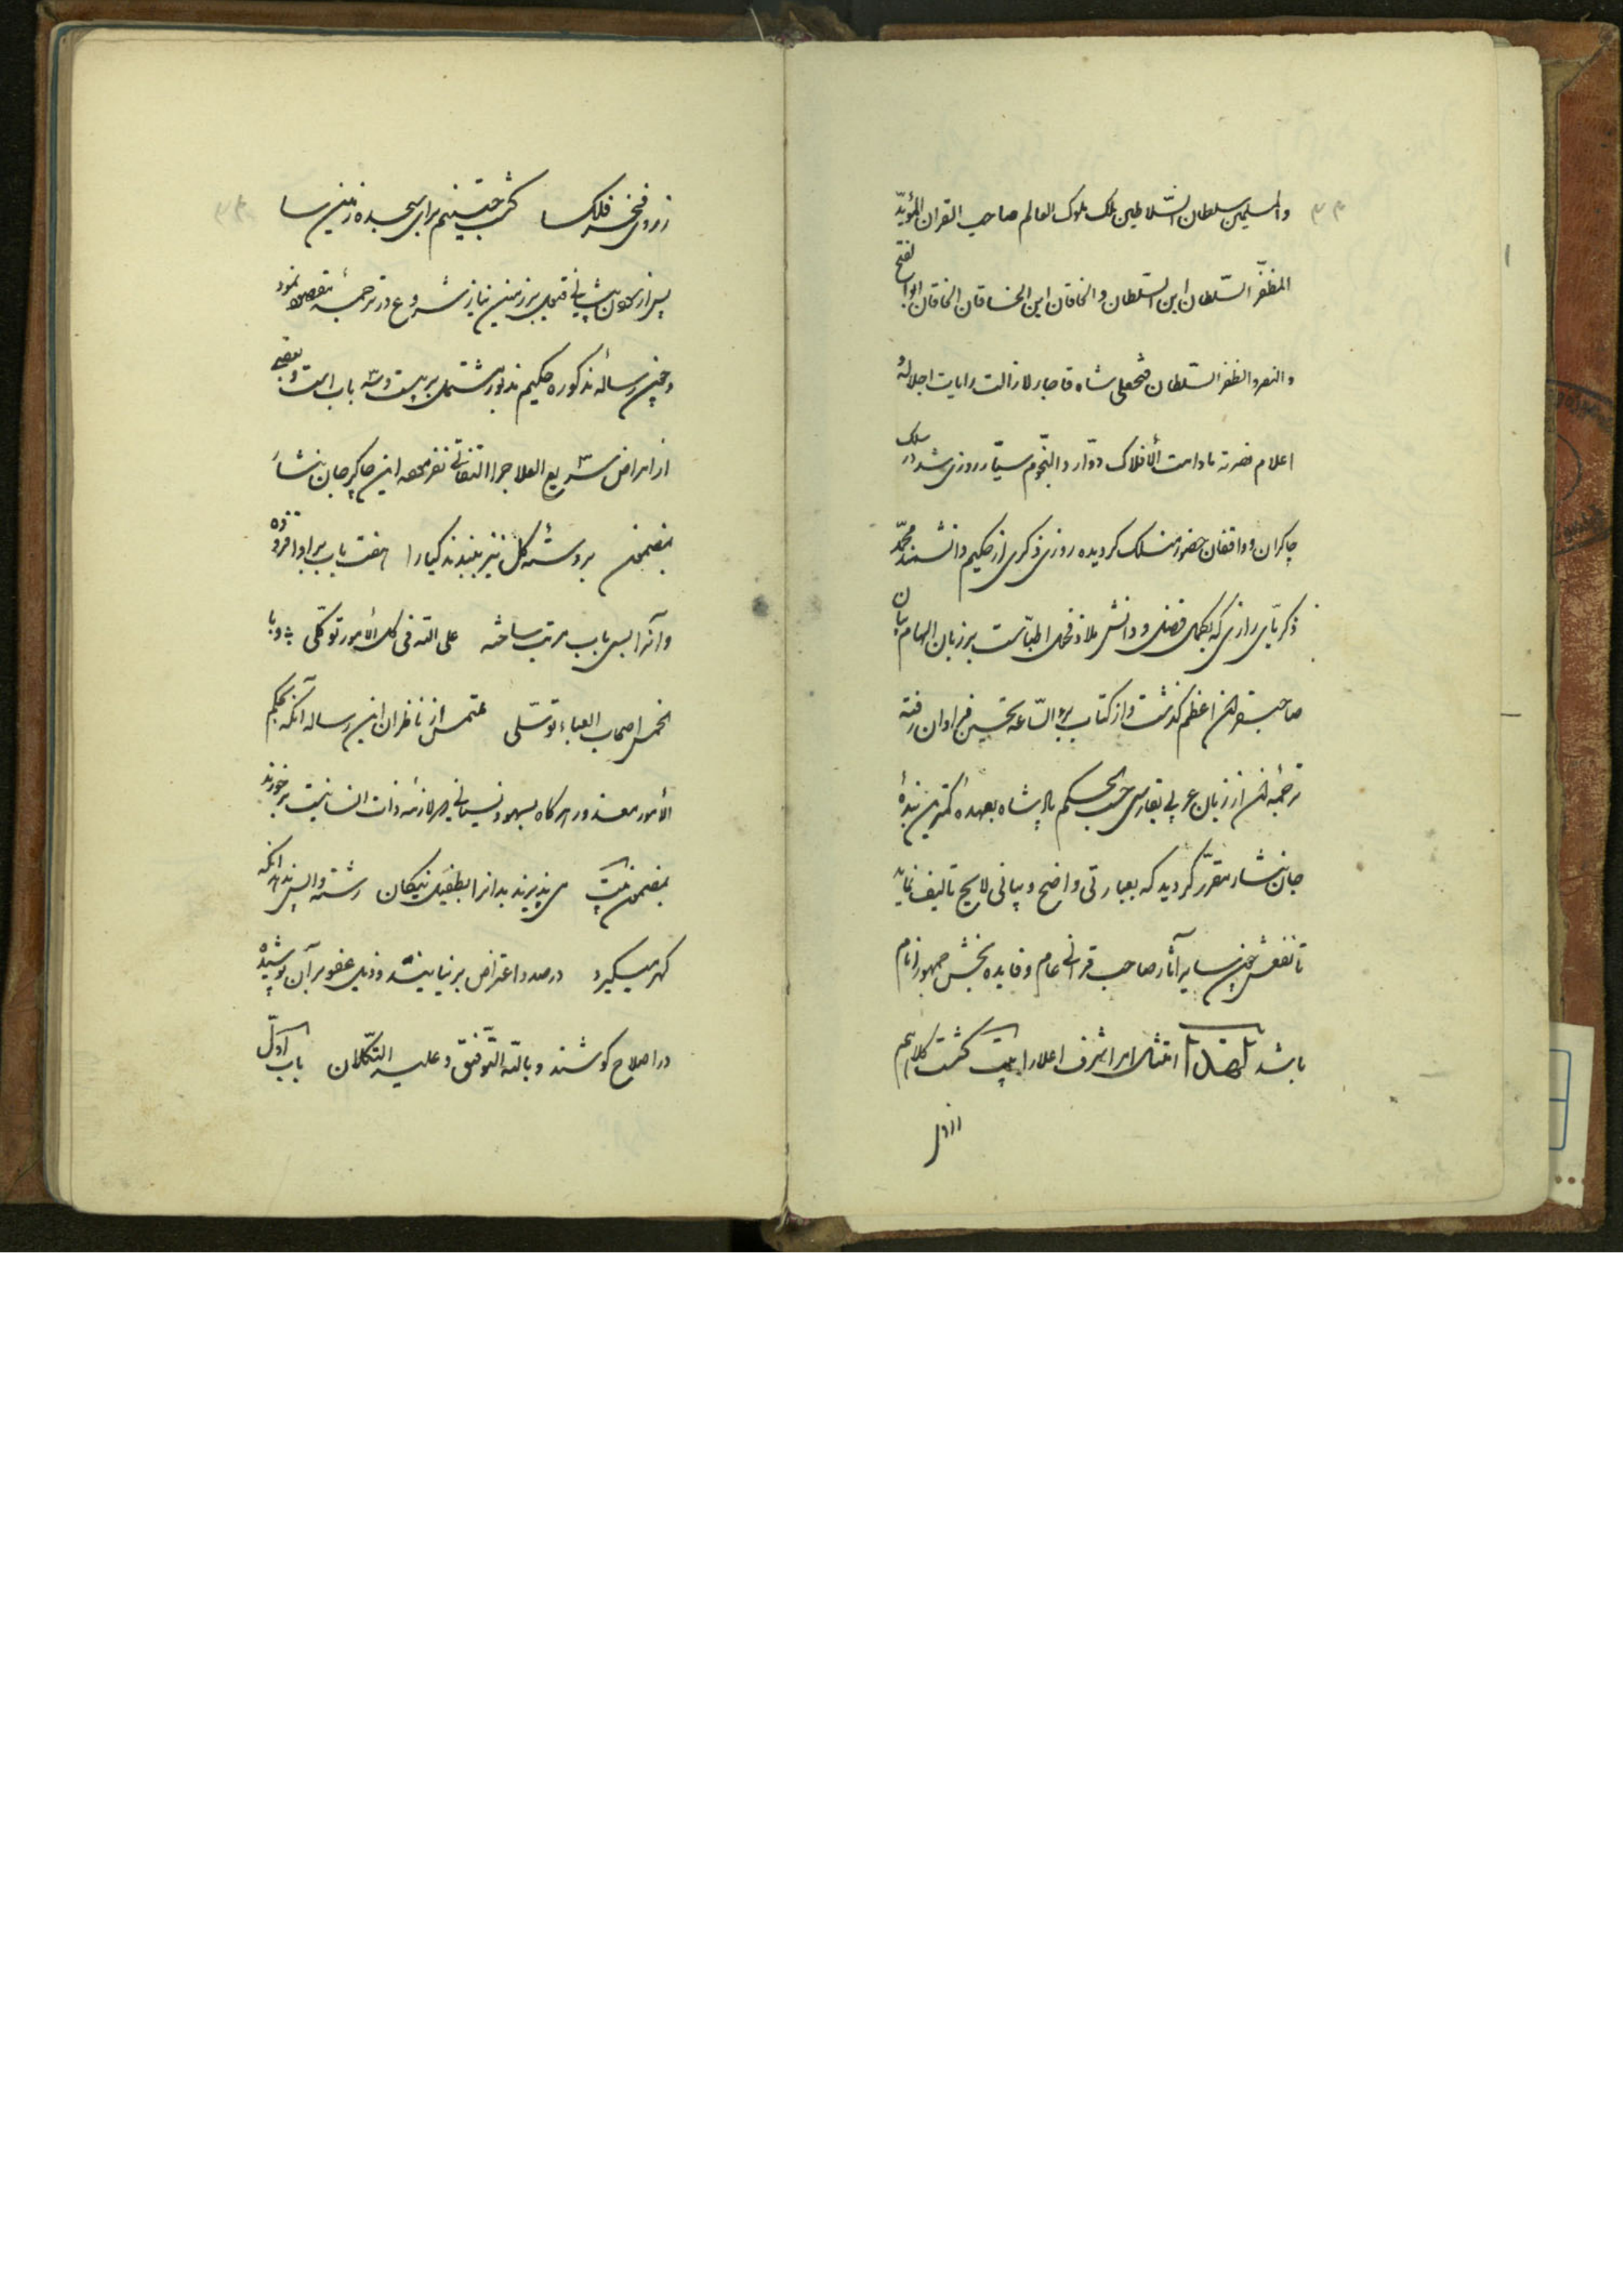 والمسلمین سلطان السّلاطین ملک ملوک العالم صاحب القران المؤیّد
المظفّر السّلطان ابن السّلطان والخاقان ابن الخاقان الخاقان ابوالفتح
والنصر والظفر السّلطان فتحعلی شاه قاجار لازالت رایات اجلاله و
اعلام نصرته مادامت الأفلاک دوّار و النّجوم سیّار روزی شد در سلک
چاکران و واقفان حضور منسلک گردیده روزی ذکری از حکیم دانشمند محمّد
ذکریّای رازی که بکمال فضل و دانش ملاذ فحول اطبّاست بر زبان الهام بیان
صاحبقران اعظم گذشت و از کتاب برء السّاعه تحسین فراوان رفته
ترجمهٔ آن از زبان عربی بفارسی حسب الحکم پادشاه بعهدهٔ کمترین بندهٔ
جان نثار مقرّر گردید که بعبارتی واضح و بیانی لایح تالیف نماید
تا نفعش چون سایر آثار صاحب قرانی عام و فایده بخش جمهور انام
باشد لهذا امتثال امر اشرف اعلا را بیت گشت کلاهم
ازمل
زروی فخر فلک سا گشت جبینم برای سجده زمین سا
پس از سودن پیشانی قبول بر زمین نیاز شروع در ترجمهٔ مقصود نمود
و چون رسالهٔ مذکوره حکیم مذبور مشتمل بر بیست و سه باب است و بعضی
از امراض سریع العلاج را التفاتی نفرموده این چاکر جان نثار
بمضمون بر دستهٔ گل نیز ببندند گیارا هفت باب بر او افزوده
و آنرا بسی باب مرتب ساخته علی الله فی کل الأمور توکّلی و با
الخمس اصحاب العباء توسّلی ملتمس از ناظران این رساله آنکه بحکم
الأمور معذور هرگاه بسهو و نسیانی که لازمهٔ ذات انسانیت برخورند
بمضمون بیت می پذیرند بدانرا بطفیل نیکان رشته واپس ندهد آنکه
گهر میگیرد درصدد اعتراض برنیایند و ذیل عفو بر آن پوشیده
در اصلاح کوشند و بالله التّوفیق و علیه التّکلان باب اوّل